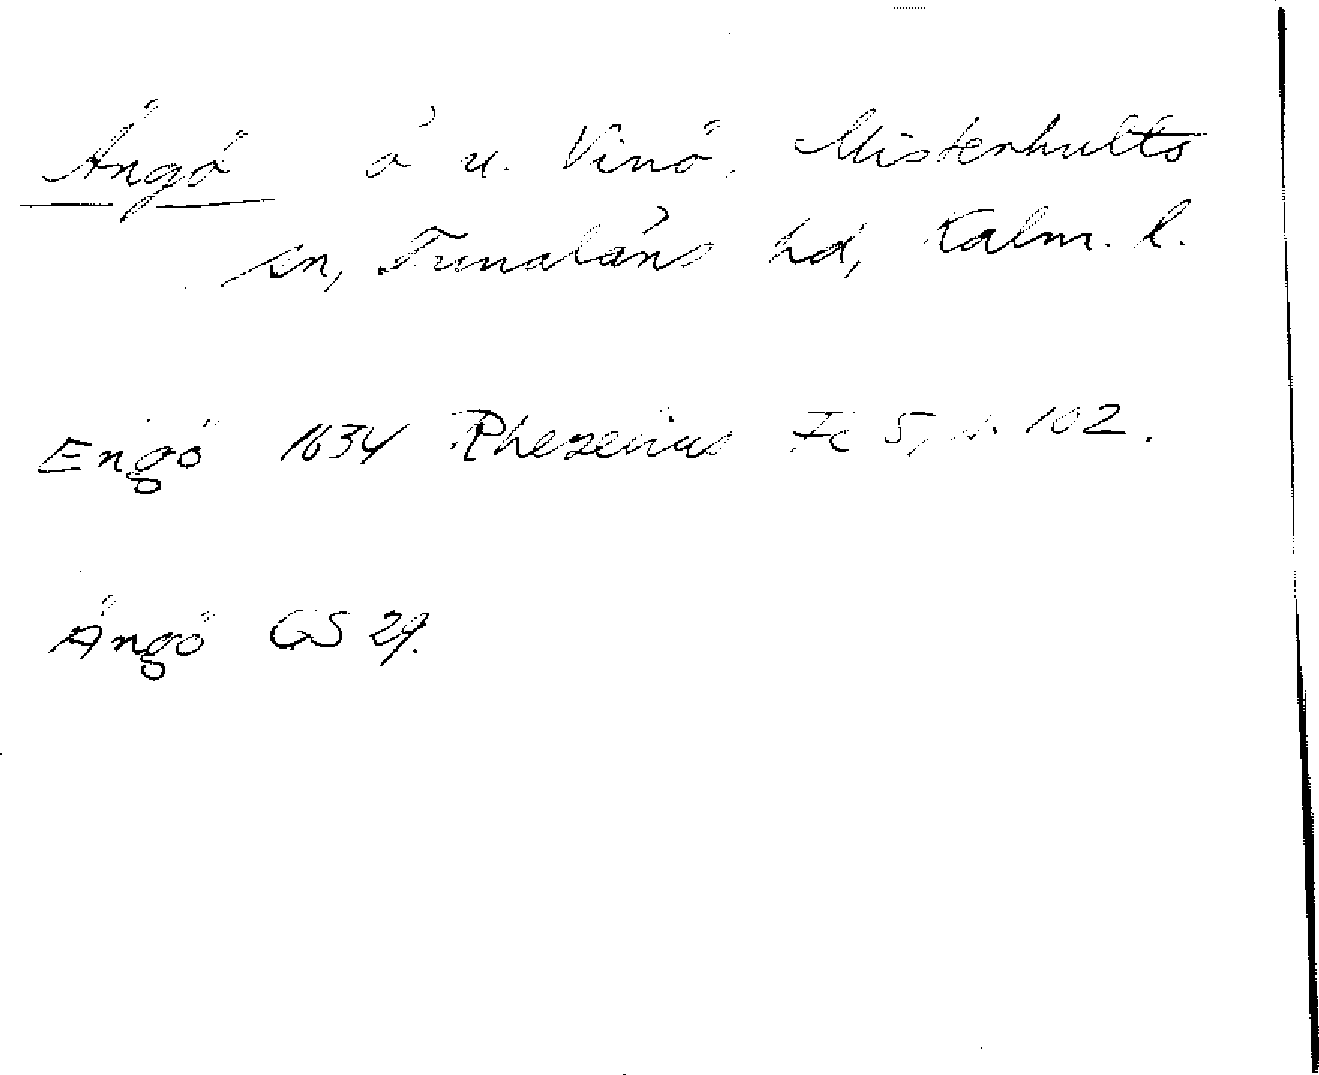 Ängö ö u. Vinö, Misterhults
sn, Tunaläns hd, Kalm. l.
Engö 1634 Rhezelius Fc 5, s. 102.
Ängö GS 29.